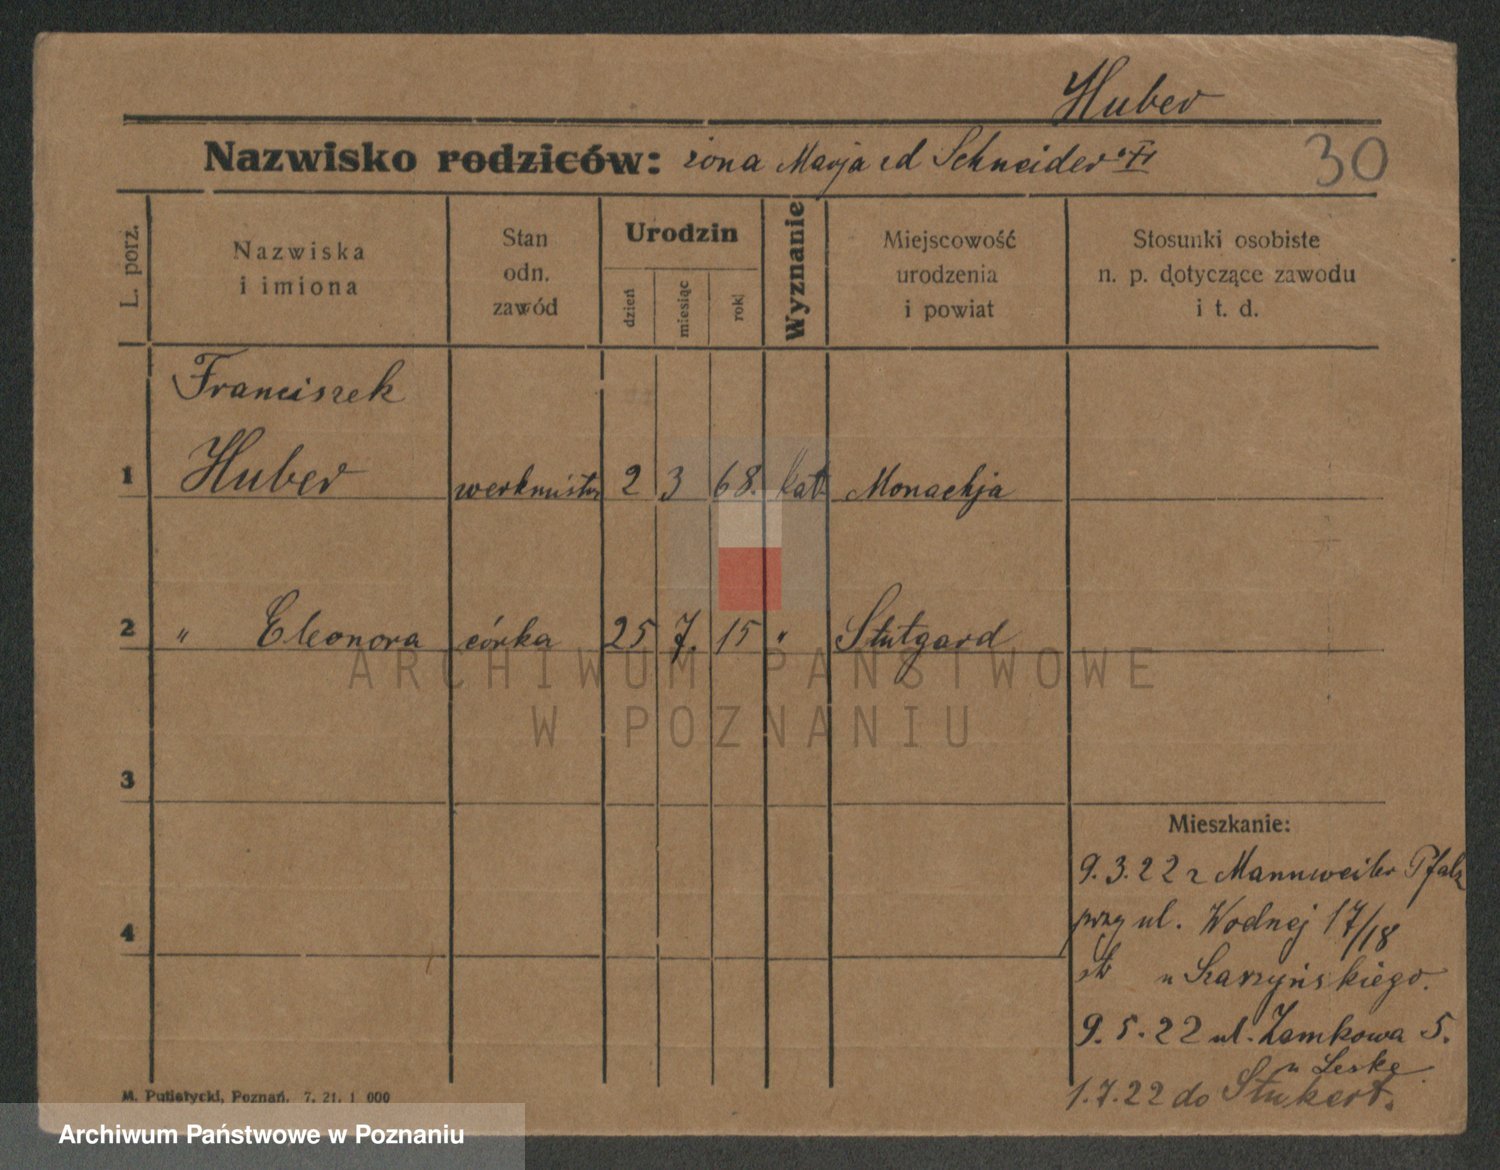 Huber
Nazwisko rodziców: żona Marja Schneider
30
L. porz.
Nazwiska
i imiona
Stan
odn.
zawód
Urodzin
dzień
miesiąc
rok
Wyznanie
Miejscowość
urodzenia
i powiat
Stosunki osobiste
n. p. dotyczące zawodu
i t. d.
Franciszek
1 Huber werkmistrz 2 3 68. kat. Monachja
2 " Eleonora córka 25 7. 15 " Stutgard
ARCHIWUM PAŃSTWOWE
W POZNANIU
3
Mieszkanie:
9.3.22 z Mannweiler Pfalz
przy ul. Wodnej 17/18
4
u Szarzyńskiego.
9.5.22 ul. Zamkowa 5.
u Leske
1.7.22 do Stukart.
M. Putiatycki, Poznań. 7, 21, 1 000
Archiwum Państwowe w Poznaniu